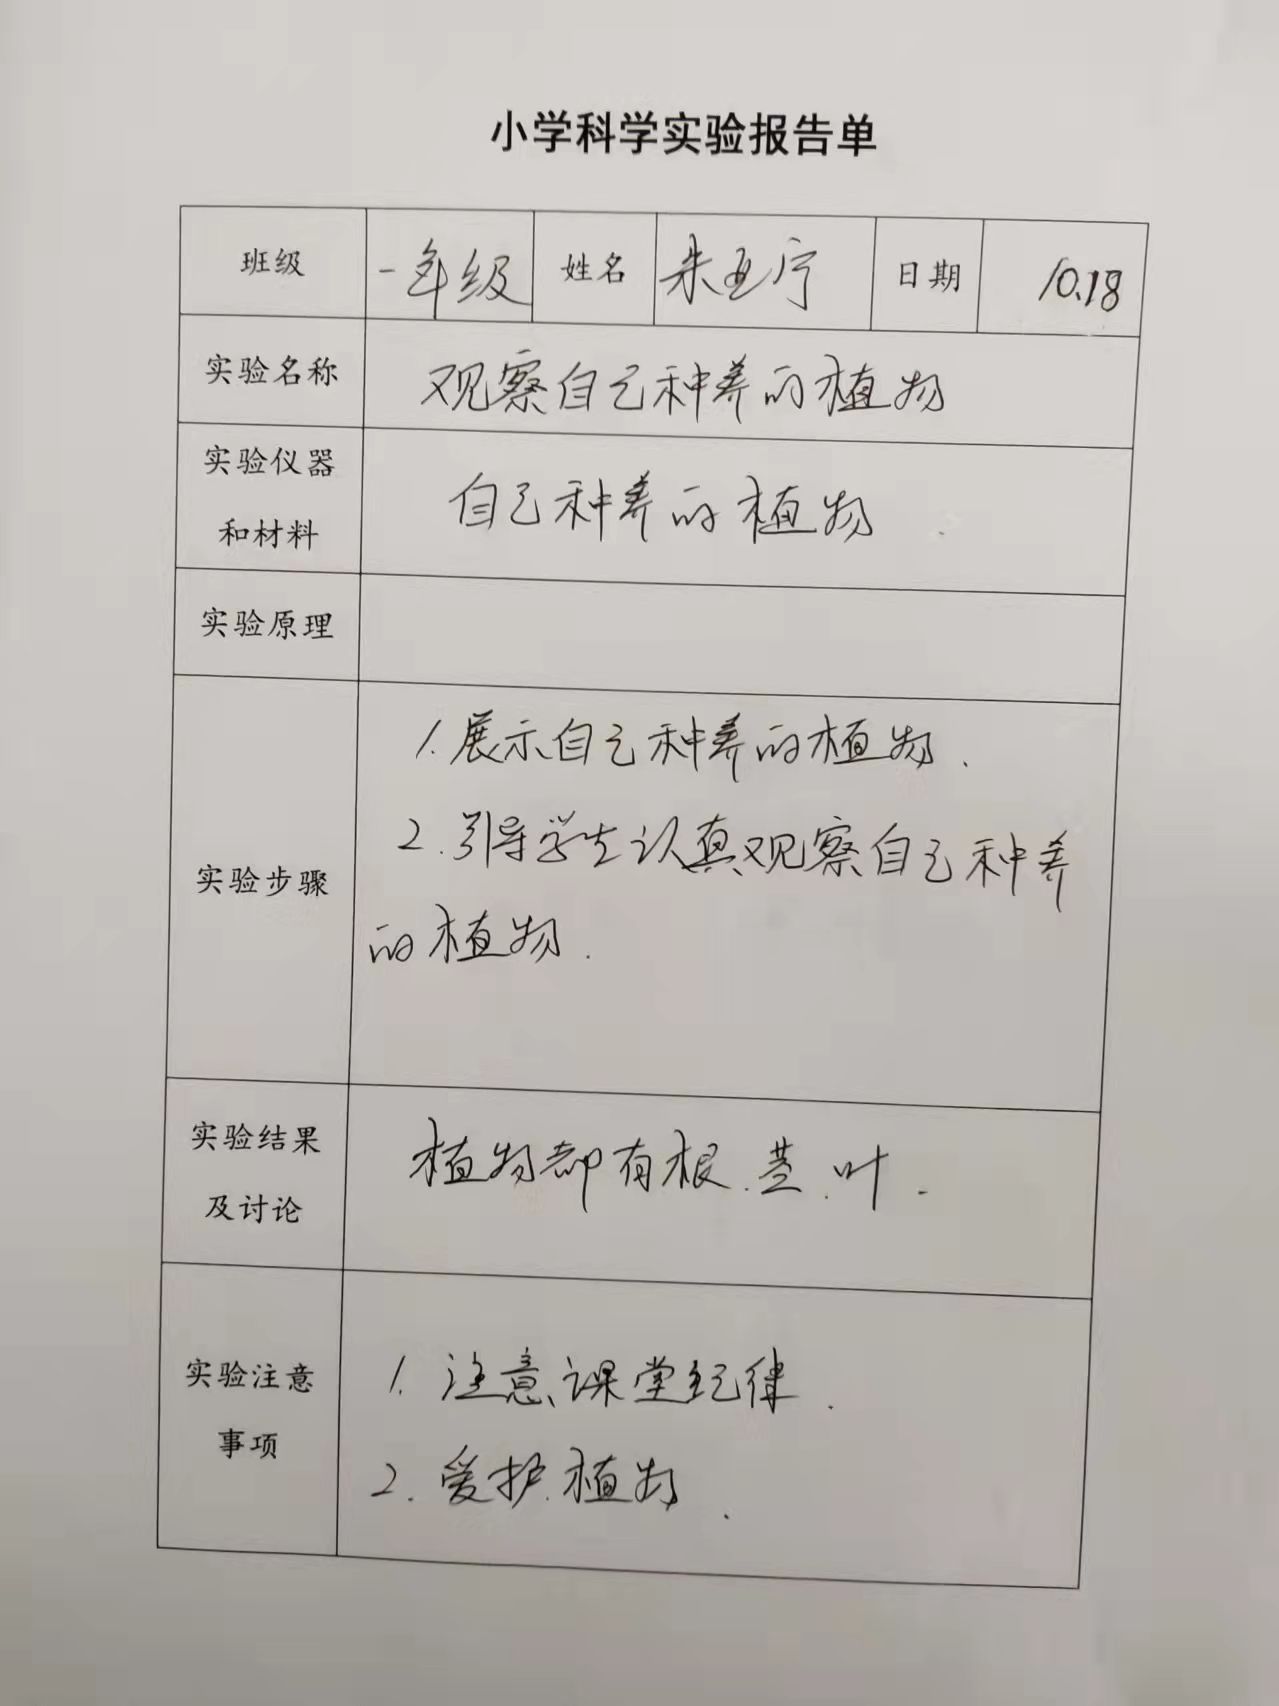 小学科学实验报告单
班级 一年级 姓名 朱亚宁 日期 10.18
实验名称 观察自己种养的植物
实验仪器
和材料
自己种养的植物
实验原理
实验步骤
1.展示自己种养的植物.
2.引导学生认真观察自己种养
的植物.
实验结果
及讨论
植物都有根.茎.叶.
实验注意
事项
1.注意课堂纪律.
2.爱护植物.